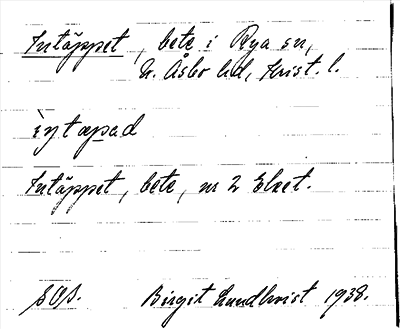 Intäppet, bete i Rya sn,
N. Åsbo hd, Krist. l.
ìŋtæpad
Intäppet, bete, nr 2 Elset.
SOS. Birgit Lundkvist 1938.